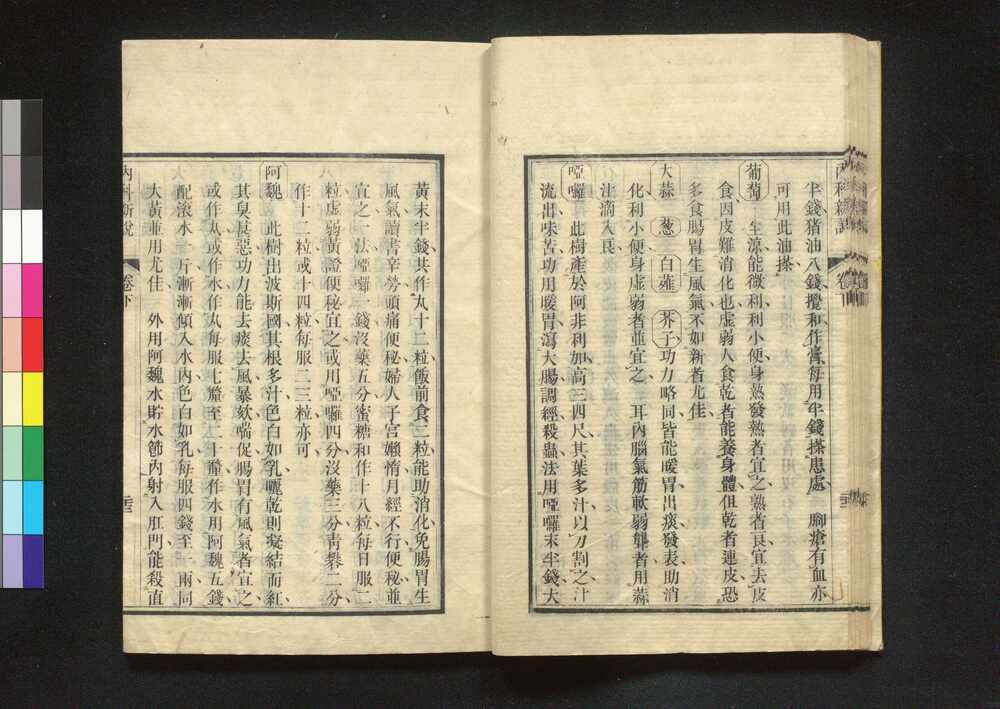 內科新說 卷下
半錢猪油八錢攪和作膏每用半錢搽患處 脚瘡有血亦
可用此油搽
葡萄 生涼能微利利小便身熱發熱者宜之熱者艮宜去皮
食因皮難消化也虛弱人食乾者能養身體但乾者連皮恐
多食腸胃生風氣不如新者尤佳
大蒜 葱 白蘿 芥子 功力略同皆能暖胃出痰發表助消
化利小便身虛弱者並宜之 耳內腦氣筋軟弱聾者用蒜
汁滴入良
啞囉 此樹產於阿非利加高三四尺其葉多汁以刀割之汁
流出味苦功用暖胃瀉大腸調經殺蟲法用啞囉末半錢大
黃末半錢共作丸十二粒飯前食二粒能助消化免腸胃生
風氣讀書辛勞頭痛便秘婦人子宮嬾惰月經不行便秘並
宜之一法啞囉一錢沒藥五分蜜糖和作十八粒每日服二
粒虛弱黃證便秘宜之或用啞囉四分沒藥三分靑礬二分
作十二粒或十四粒每服二三粒亦可
阿魏 此樹出波斯國其根多汁色白如乳曬乾則凝結而紅
其臭甚惡功力能去痰去風暴欬喘促腸胃有風氣者宜之
或作丸或作水作丸每服七釐至二十釐作水用阿魏五錢
配滾水一斤漸漸傾入水內色白如乳每服四錢至一兩同
大黃並用尤佳 外用阿魏水貯水節內射入肛門能殺直
內科新說 卷下